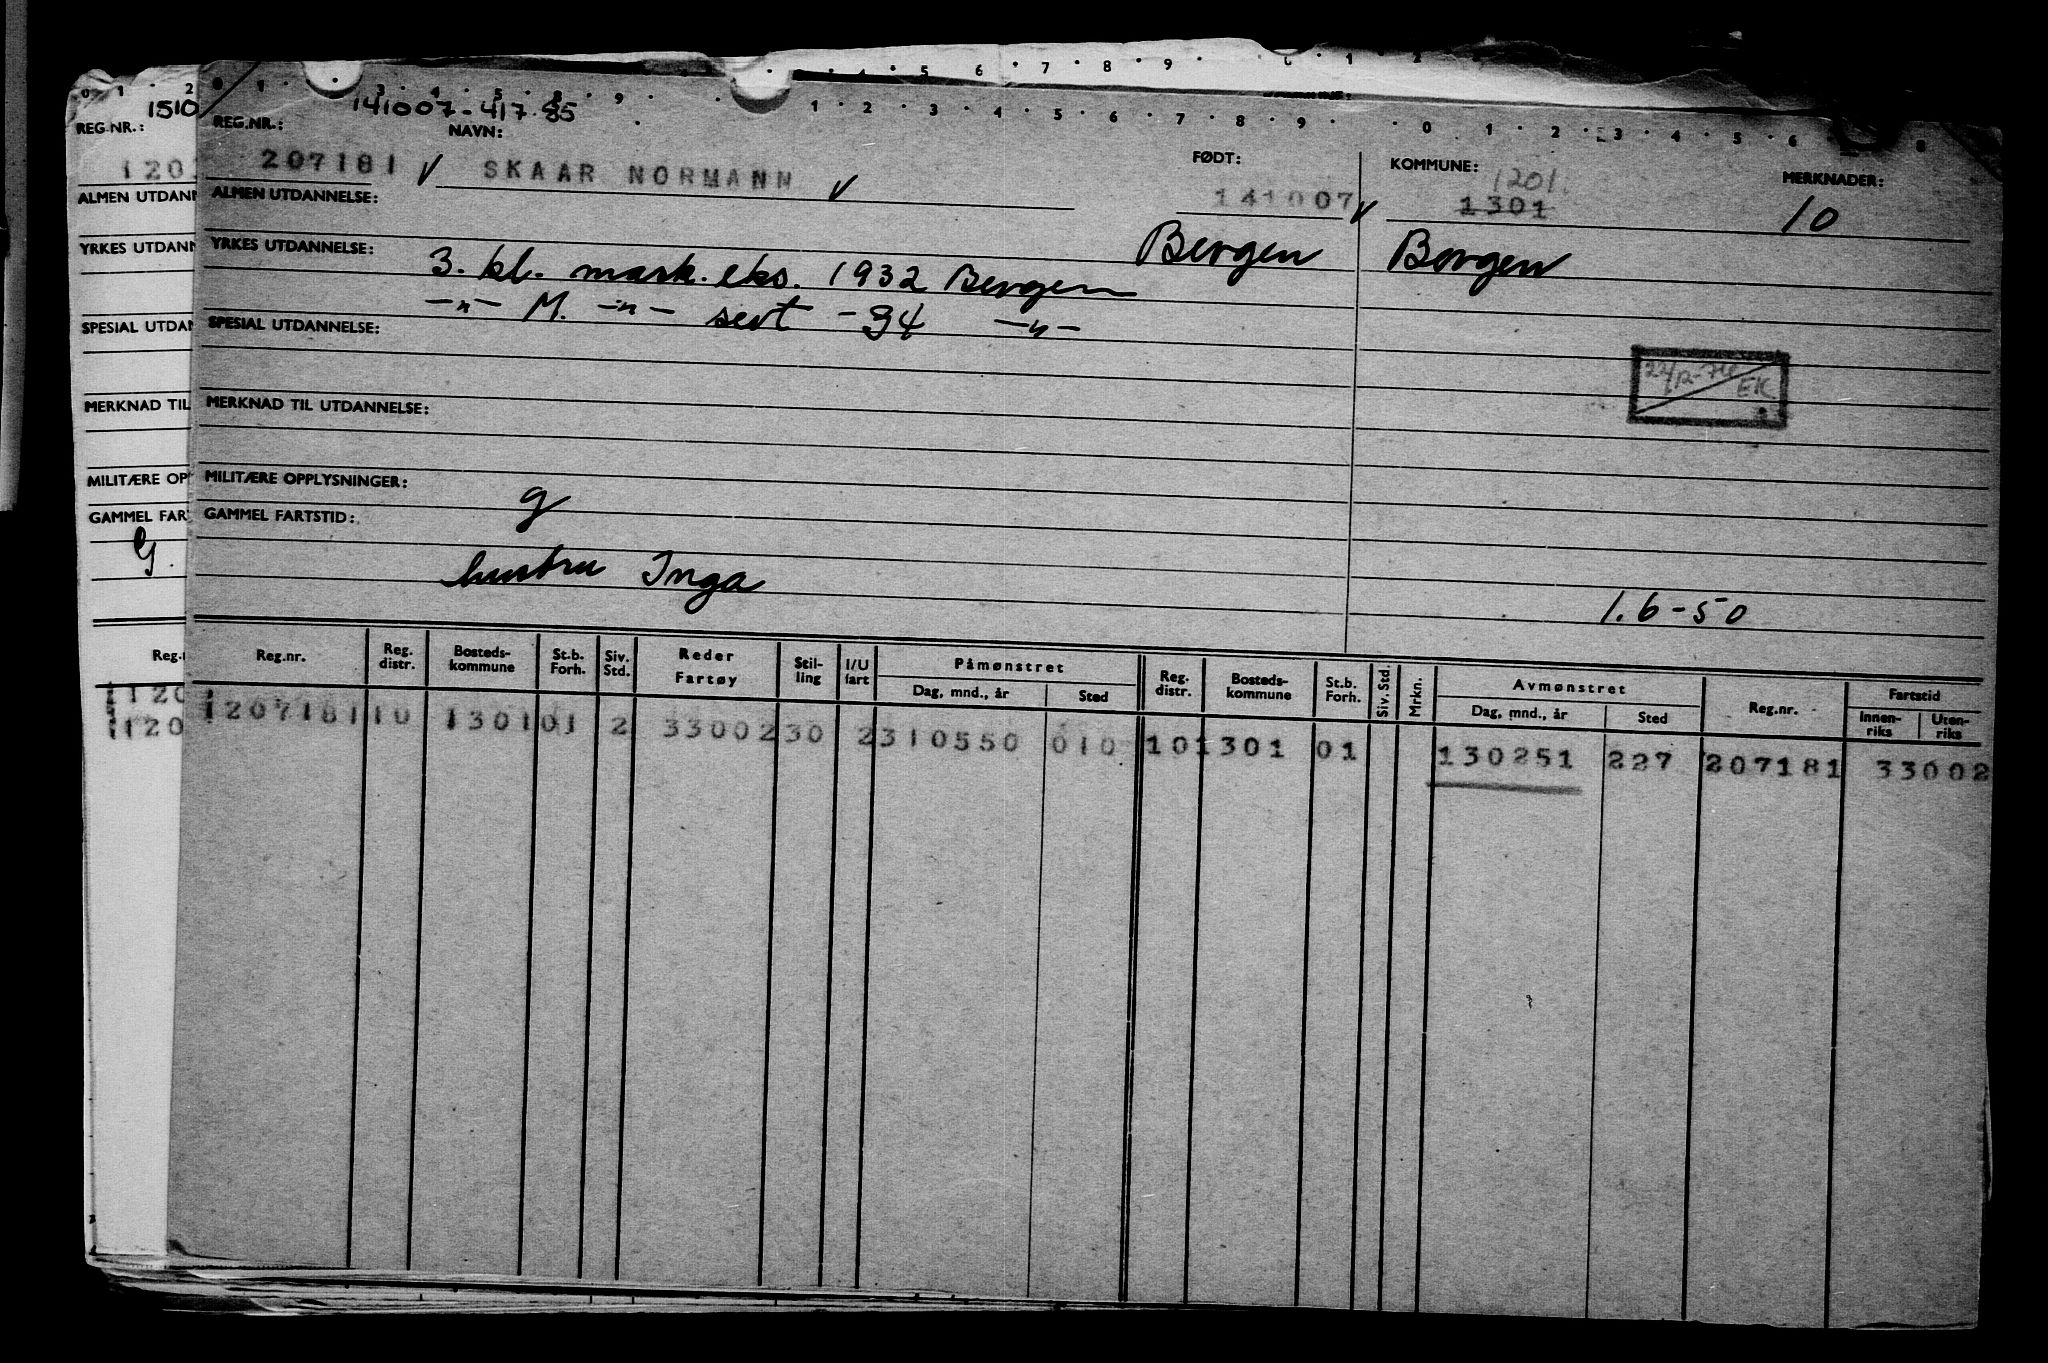 0 1 2
1510
REG.NR.:
120
ALMEN UTDANN
YRKES UTDANN
SPESIAL UTDAN
MERKNAD TIL
MILITÆRE OP
GAMMEL FAR
G.
Reg.n
120
120
141007-417 85
REG.NR.: NAVN: FØDT: KOMMUNE: MERKNADER:
207181 SKAAR NORMANN 141007 1201.
1301 10
ALMEN UTDANNELSE:
Bergen Bergen
YRKES UTDANNELSE: 3. kl. mask. eks. 1932 Bergen
-"- M. -"- sert -34 -"-
SPESIAL UTDANNELSE:
EK
MERKNAD TIL UTDANNELSE:
MILITÆRE OPPLYSNINGER:
g
GAMMEL FARTSTID:
hustru Inga
1.6-50
Reg.nr. Reg. distr. Bosteds-kommune St.b. Forh. Siv. Std. Reder Fartøy Stil-ling I/U fart Påmønstret Dag, mnd., år Sted Reg. distr. Bosteds-kommune St.b. Forh. Siv. Std. Mrkn. Avmønstret Dag, mnd., år Sted Reg.nr. Fartstid Innen-riks Uten-riks
1207181 10 1301 01 2 33002 30 2 310550 010 10 1301 01 130251 227 207181 33002